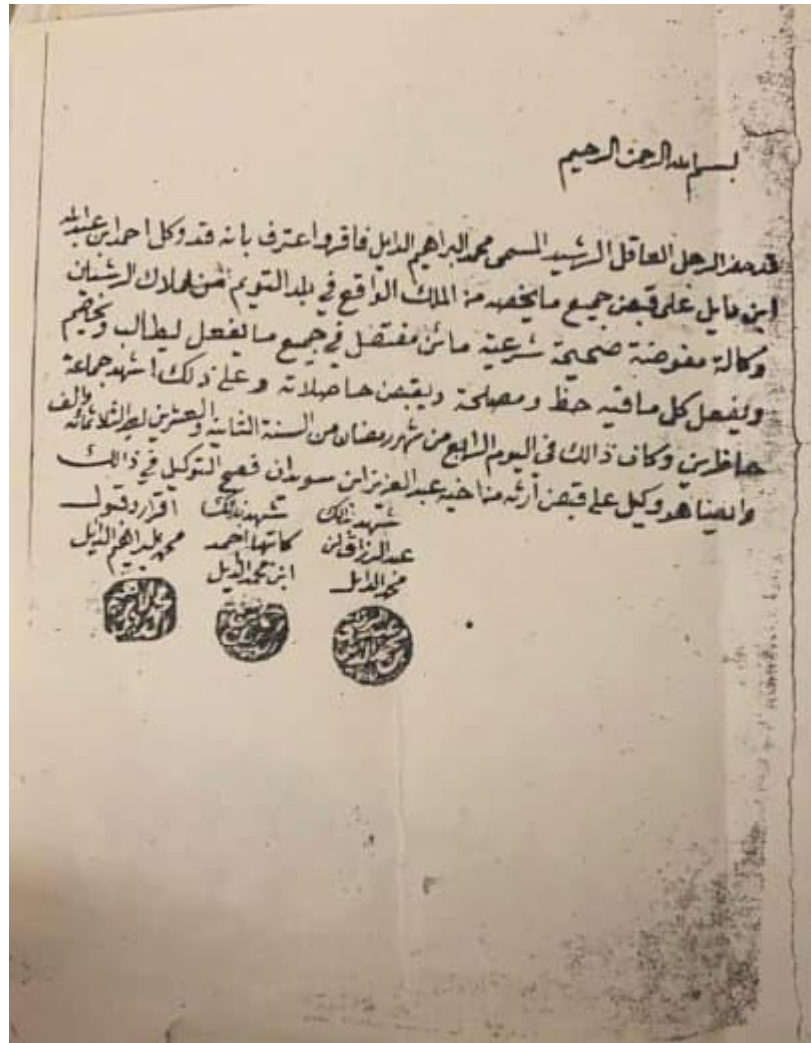 بسم الله الرحمن الرحيم
قد حضر الرجل العاقل الرشيد المسمى محمد البراهيم الدايل فاقر واعترف بانه قد وكل احمد ابن عبدالله
ابن دايل على قبض جميع ما يخصه من الملك الواقع في بلد التويم من املاك الرشدان
وكالة مفوضة صحيحة شرعية في جميع ما يفعل ليطالب ويخاصم
ويفعل كل ما فيه حظ ومصلحة ويقبض حاصلاته وعلى ذلك اشهد جماعة
حاظرين وكان ذالك في اليوم الرابع من شهر رمضان من السنة الثانية والعشرين بعد الثلاثمائه والف
وايضا هو وكيل على قبض ارثه من اخيه عبد العزيز ابن سويدان فصح التوكيل في ذالك
شهد بذلك شهد بذلك اقرار وقبول
عبد الرزاق بن كاتبها احمد محمد البراهيم الدايل
محمد الدايل ابن محمد الدايل